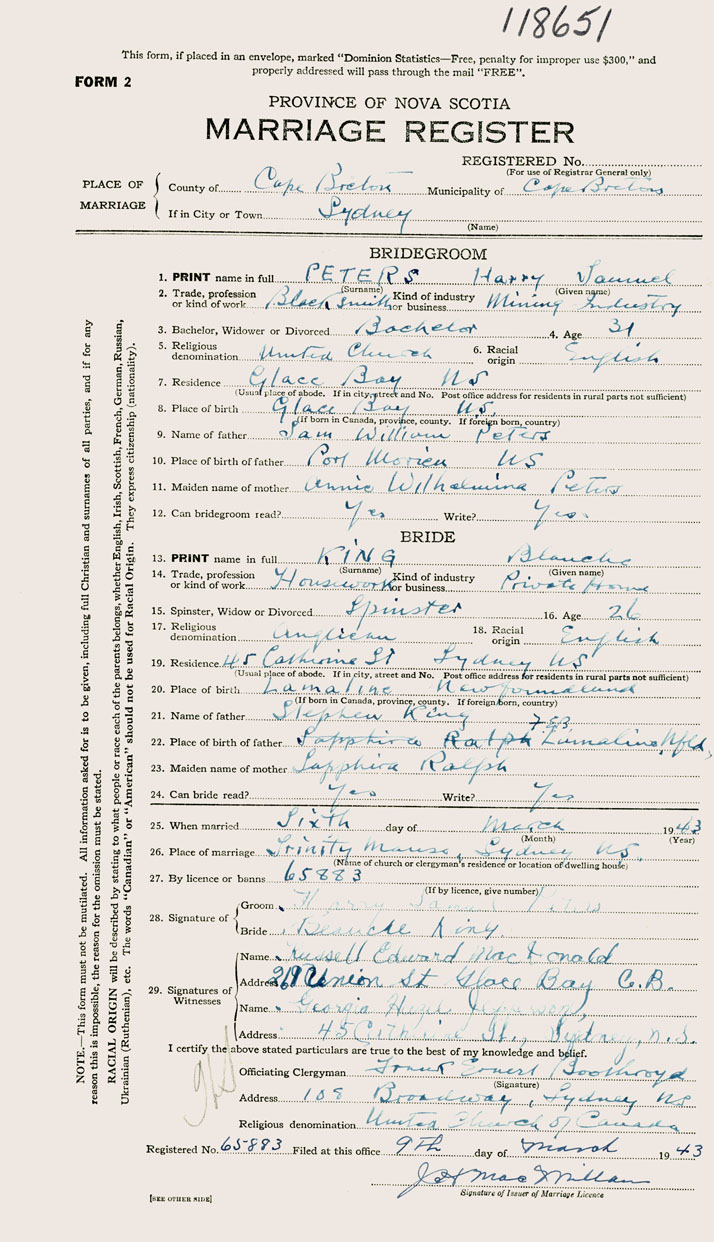 118651
This form, if placed in an envelope, marked “Dominion Statistics—Free, penalty for improper use $300,” and
properly addressed will pass through the mail “FREE”.
FORM 2
PROVINCE OF NOVA SCOTIA
MARRIAGE REGISTER
REGISTERED No.
(For use of Registrar General only)
PLACE OF MARRIAGE
County of Cape Breton Municipality of Cape Breton
If in City or Town Sydney
(Name)
BRIDEGROOM
1. PRINT name in full PETERS Harry Samuel
(Surname) (Given name)
2. Trade, profession or kind of work Blacksmith Kind of industry or business Mining Industry
3. Bachelor, Widower or Divorced Bachelor 4. Age 31
5. Religious denomination United Church 6. Racial origin English
7. Residence Glace Bay NS
(Usual place of abode. If in city, street and No. Post office address for residents in rural parts not sufficient)
8. Place of birth Glace Bay NS.
(If born in Canada, province, county. If foreign born, country)
9. Name of father Sam William Peters
10. Place of birth of father Port Morien NS
11. Maiden name of mother Annie Wilhelmina Peters
12. Can bridegroom read? Yes Write? Yes
BRIDE
13. PRINT name in full KING Blanche
(Surname) (Given name)
14. Trade, profession or kind of work Housework Kind of industry or business Private Home
15. Spinster, Widow or Divorced Spinster 16. Age 26
17. Religious denomination Anglican 18. Racial origin English
19. Residence 45 Catherine St Sydney NS
(Usual place of abode. If in city, street and No. Post office address for residents in rural parts not sufficient)
20. Place of birth Lamaline Newfoundland
(If born in Canada, province, county. If foreign born, country)
21. Name of father Stephen King
22. Place of birth of father Sapphira Ralph Lamaline, Nfld,
23. Maiden name of mother Sapphira Ralph
24. Can bride read? Yes Write? Yes
25. When married Sixth day of March 1943
(Month) (Year)
26. Place of marriage Trinity Manse, Sydney NS.
(Name of church or clergyman's residence or location of dwelling house)
27. By licence or banns 65883
(If by licence, give number)
28. Signature of
Groom Harry Samuel Peters
Bride Blanche King.
29. Signatures of Witnesses
Name Russell Edward MacDonald
Address Union St Glace Bay C.B.
Name Georgia Hazel
Address 45 Catherine St., Sydney, N.S.
I certify the above stated particulars are true to the best of my knowledge and belief.
Officiating Clergyman Frank Ernest Boothroyd
(Signature)
Address 108 Broadway, Sydney NS
Religious denomination United Church of Canada
Registered No. 65883 Filed at this office 9th day of March 1943
J H MacMillan
Signature of Issuer of Marriage Licence
[SEE OTHER SIDE]
NOTE.—This form must not be mutilated. All information asked for is to be given, including full Christian and surnames of all parties, and if for any
reason this is impossible, the reason for the omission must be stated.
RACIAL ORIGIN will be described by stating to what people or race each of the parents belongs, whether English, Irish, Scottish, French, German, Russian,
Ukrainian (Ruthenian), etc. The words “Canadian” or “American” should not be used for Racial Origin. They express citizenship (nationality).